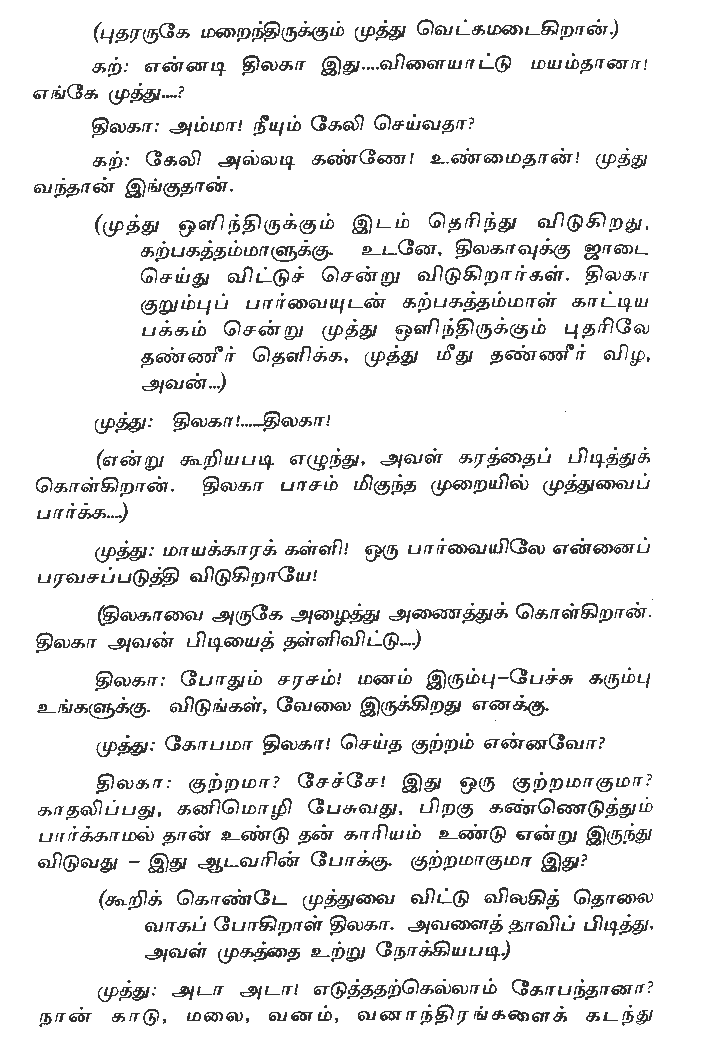 (புதரருகே மறைந்திருக்கும் முத்து வெட்கமடைகிறான்.)
கற்: என்னடி திலகா இது....விளையாட்டு மயம்தானா!
எங்கே முத்து....?
திலகா: அம்மா! நீயும் கேலி செய்வதா?
கற்: கேலி அல்லடி கண்ணே! உண்மைதான்! முத்து
வந்தான் இங்குதான்.
(முத்து ஒளிந்திருக்கும் இடம் தெரிந்து விடுகிறது,
கற்பகத்தம்மாளுக்கு. உடனே, திலகாவுக்கு ஜாடை
செய்து விட்டுச் சென்று விடுகிறார்கள். திலகா
குறும்புப் பார்வையுடன் கற்பகத்தம்மாள் காட்டிய
பக்கம் சென்று முத்து ஒளிந்திருக்கும் புதரிலே
தண்ணீர் தெளிக்க, முத்து மீது தண்ணீர் விழ,
அவன்...)
முத்து: திலகா!......திலகா!
(என்று கூறியபடி எழுந்து, அவள் கரத்தைப் பிடித்துக்
கொள்கிறான். திலகா பாசம் மிகுந்த முறையில் முத்துவைப்
பார்க்க....)
முத்து: மாயக்காரக் கள்ளி! ஒரு பார்வையிலே என்னைப்
பரவசப்படுத்தி விடுகிறாயே!
(திலகாவை அருகே அழைத்து அணைத்துக் கொள்கிறான்.
திலகா அவன் பிடியைத் தள்ளிவிட்டு....)
திலகா: போதும் சரசம்! மனம் இரும்பு–பேச்சு கரும்பு
உங்களுக்கு. விடுங்கள், வேலை இருக்கிறது எனக்கு.
முத்து: கோபமா திலகா! செய்த குற்றம் என்னவோ?
திலகா: குற்றமா? சேச்சே! இது ஒரு குற்றமாகுமா?
காதலிப்பது, கனிமொழி பேசுவது, பிறகு கண்ணெடுத்தும்
பார்க்காமல் தான் உண்டு தன் காரியம் உண்டு என்று இருந்து
விடுவது – இது ஆடவரின் போக்கு. குற்றமாகுமா இது?
(கூறிக் கொண்டே முத்துவை விட்டு விலகித் தொலை
வாகப் போகிறாள் திலகா. அவளைத் தாவிப் பிடித்து,
அவள் முகத்தை உற்று நோக்கியபடி.)
முத்து: அடா அடா! எடுத்ததற்கெல்லாம் கோபந்தானா?
நான் காடு, மலை, வனம், வனாந்திரங்களைக் கடந்து